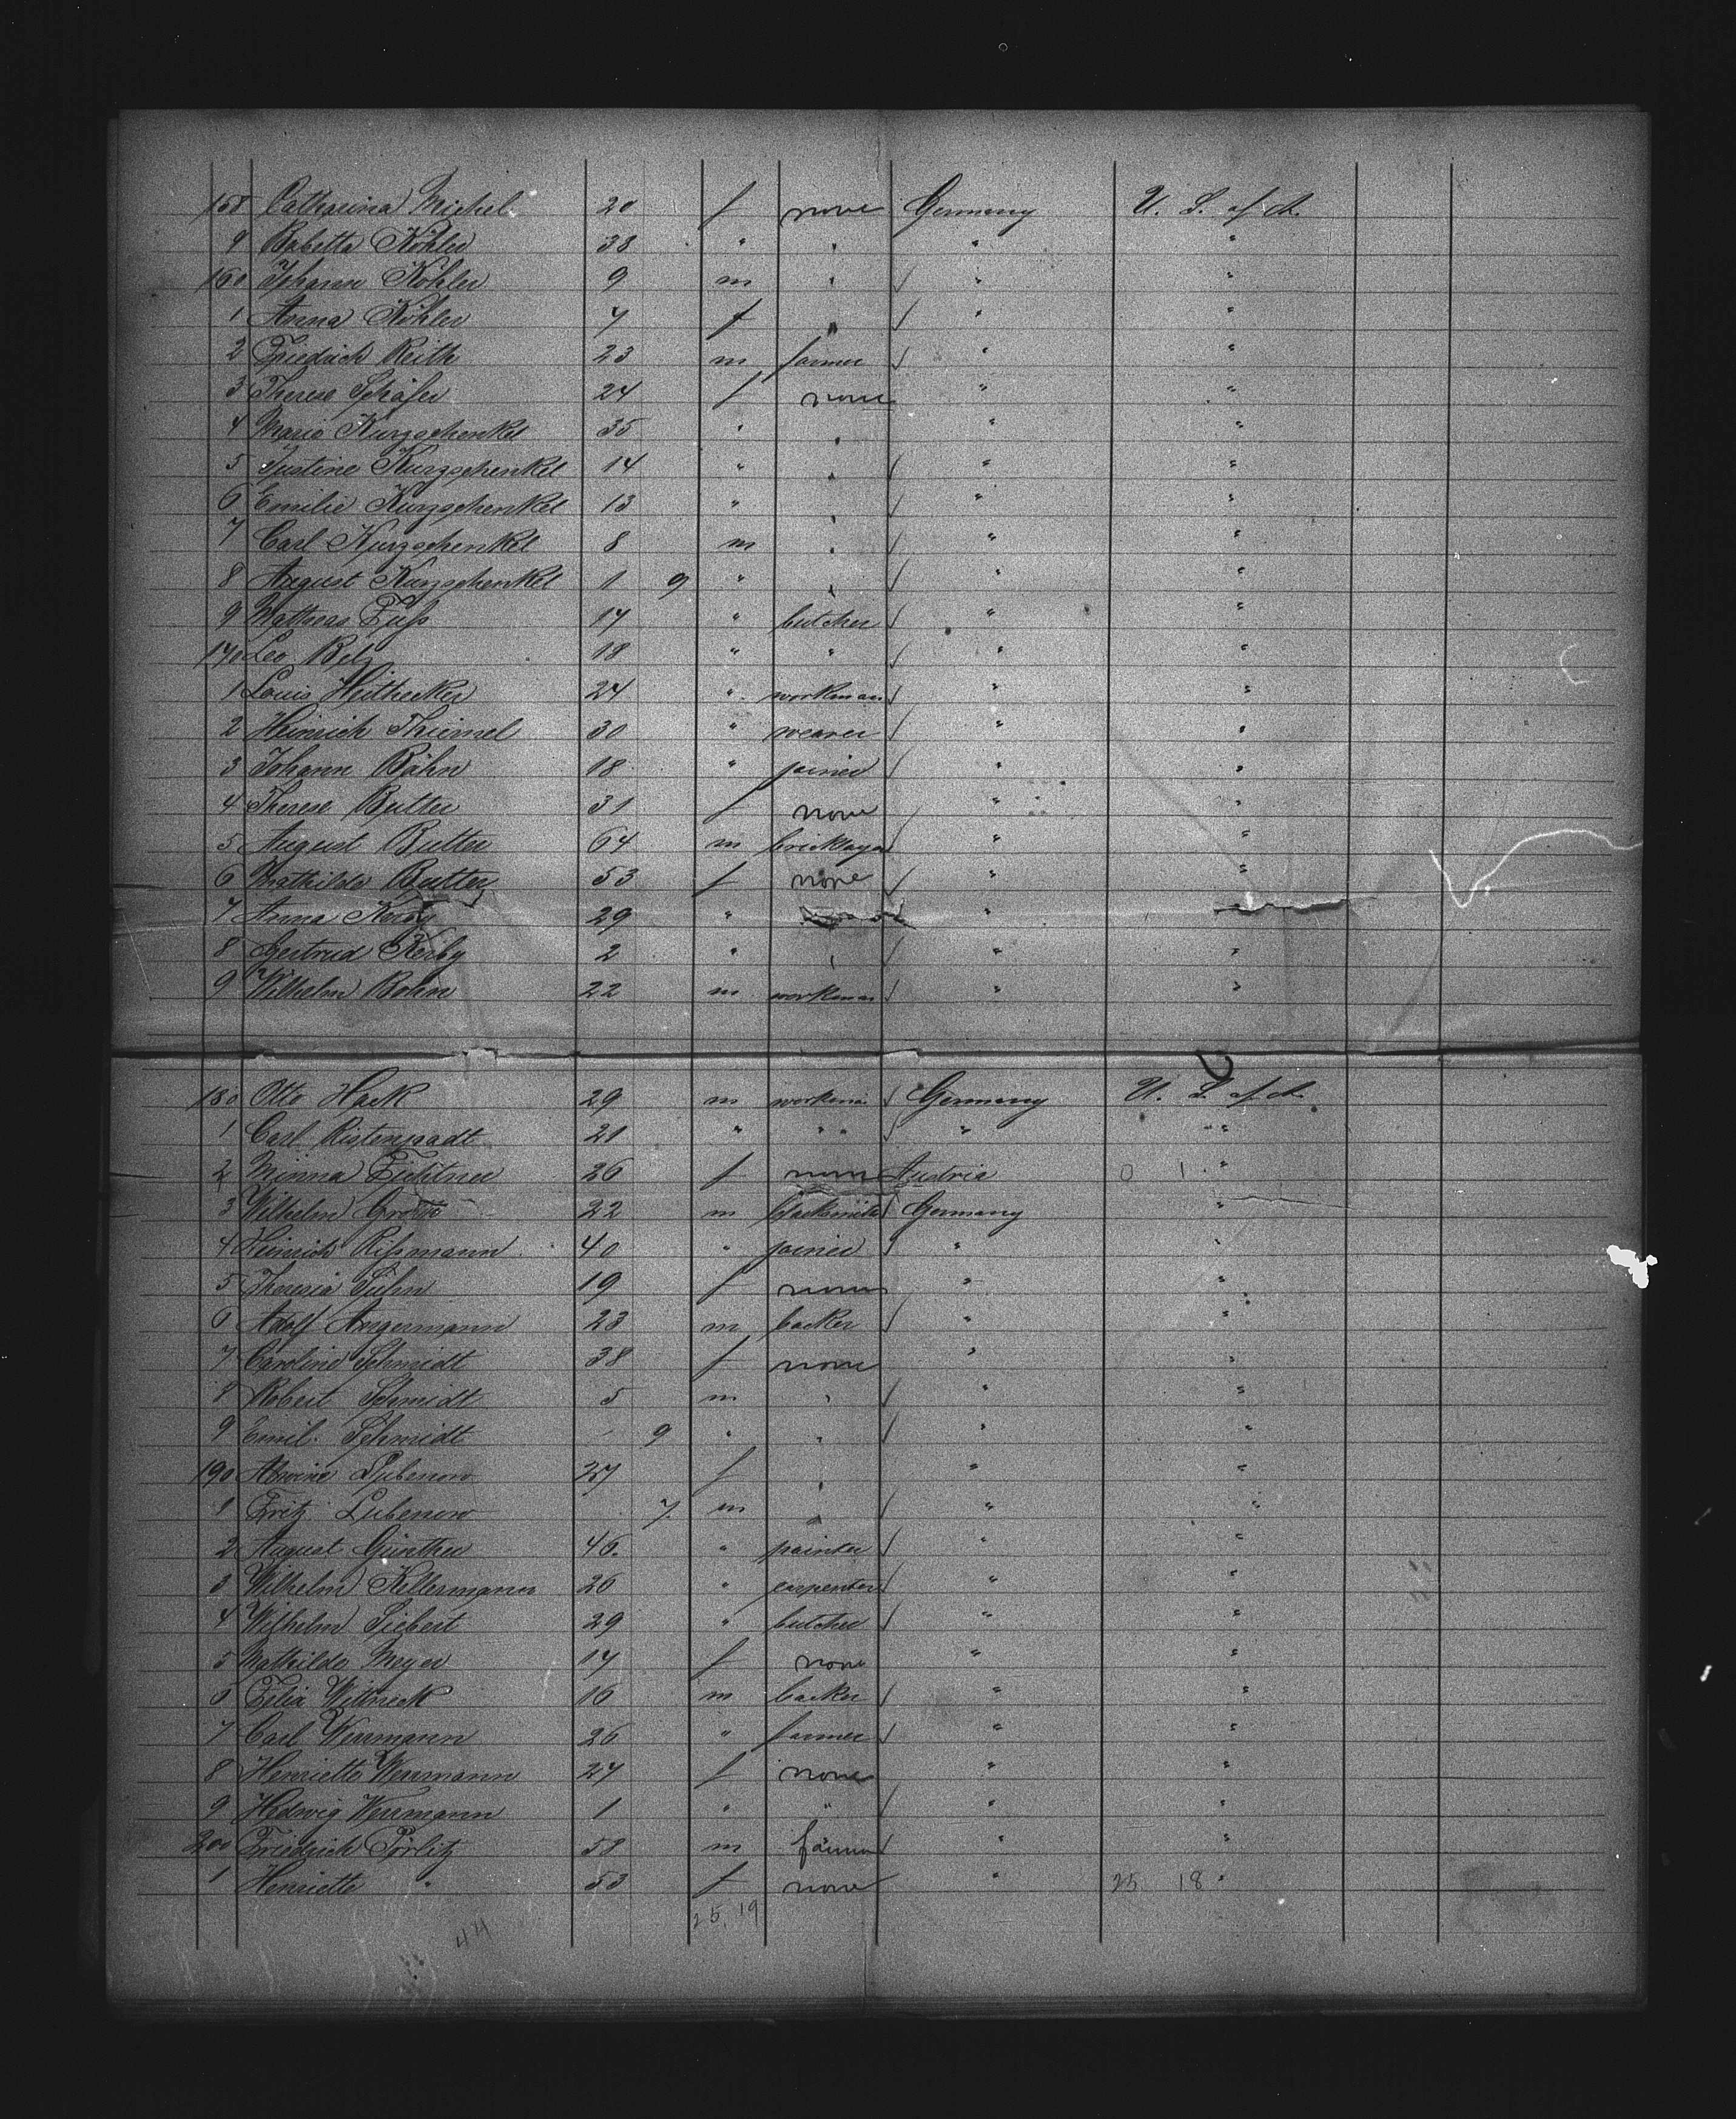 158 Catharina Michel 20 f none Germany U. S. of A.
9 Babette Köhler 38 " " " "
160 Johann Köhler 9 m " " "
1 Anna Köhler 7 f " " "
2 Friedrich Reith 23 m farmer " "
3 Therese Schäfer 24 f none " "
4 Marie Kurzschenkel 35 " " " "
5 Justine Kurzschenkel 14 " " " "
6 Emilie Kurzschenkel 13 " " " "
7 Carl Kurzschenkel 8 m " " "
8 August Kurzschenkel 1 9 " " " "
9 Mathias Fuß 17 " butcher " "
170 Leo Belz 18 " " " "
1 Louis Heithecker 24 " workman " "
2 Heinrich Thiemel 30 " weaver " "
3 Johann Bähn 18 " joiner " "
4 Therese Butter 31 f none " "
5 August Butter 64 m bricklayer " "
6 Mathilde Butter 53 f none " "
7 Anna 29 " " "
8 Gertrud Kerby 2 " " " "
9 Wilhelm Bohn 22 m workman " "
180 Otto Hack 29 m workman Germany U. S. of A.
1 Carl Ristenpadt 21 " " " "
2 Minna Fichtner 26 f none Austria 0 1 "
3 Wilhelm 22 m blacksmith Germany "
4 Heinrich Rißmann 40 " joiner " "
5 Theresia Suhn 19 f none " "
6 Adolf Angermann 23 m backer " "
7 Caroline Schmidt 38 f none " "
8 Robert Schmidt 5 m " " "
9 Emil Schmidt 9 " " " "
190 Alwine Lübenow 27 f " " "
1 Fritz Lubenow 7 m " " "
2 August Günther 46 " painter " "
3 Wilhelm Kellermann 26 " carpenter " "
4 Wilhelm Siebert 29 " butcher " "
5 Mathilde Meyer 17 f none " "
6 Felix Wittneck 16 m backer " "
7 Carl Werrmann 26 " farmer " "
8 Henriette Werrmann 27 f none " "
9 Hedwig Werrmann 1 " " " "
200 Friedrich Pörlitz 58 m farmer " "
1 Henriette " 53 f none " 25 18 "
25, 19
44